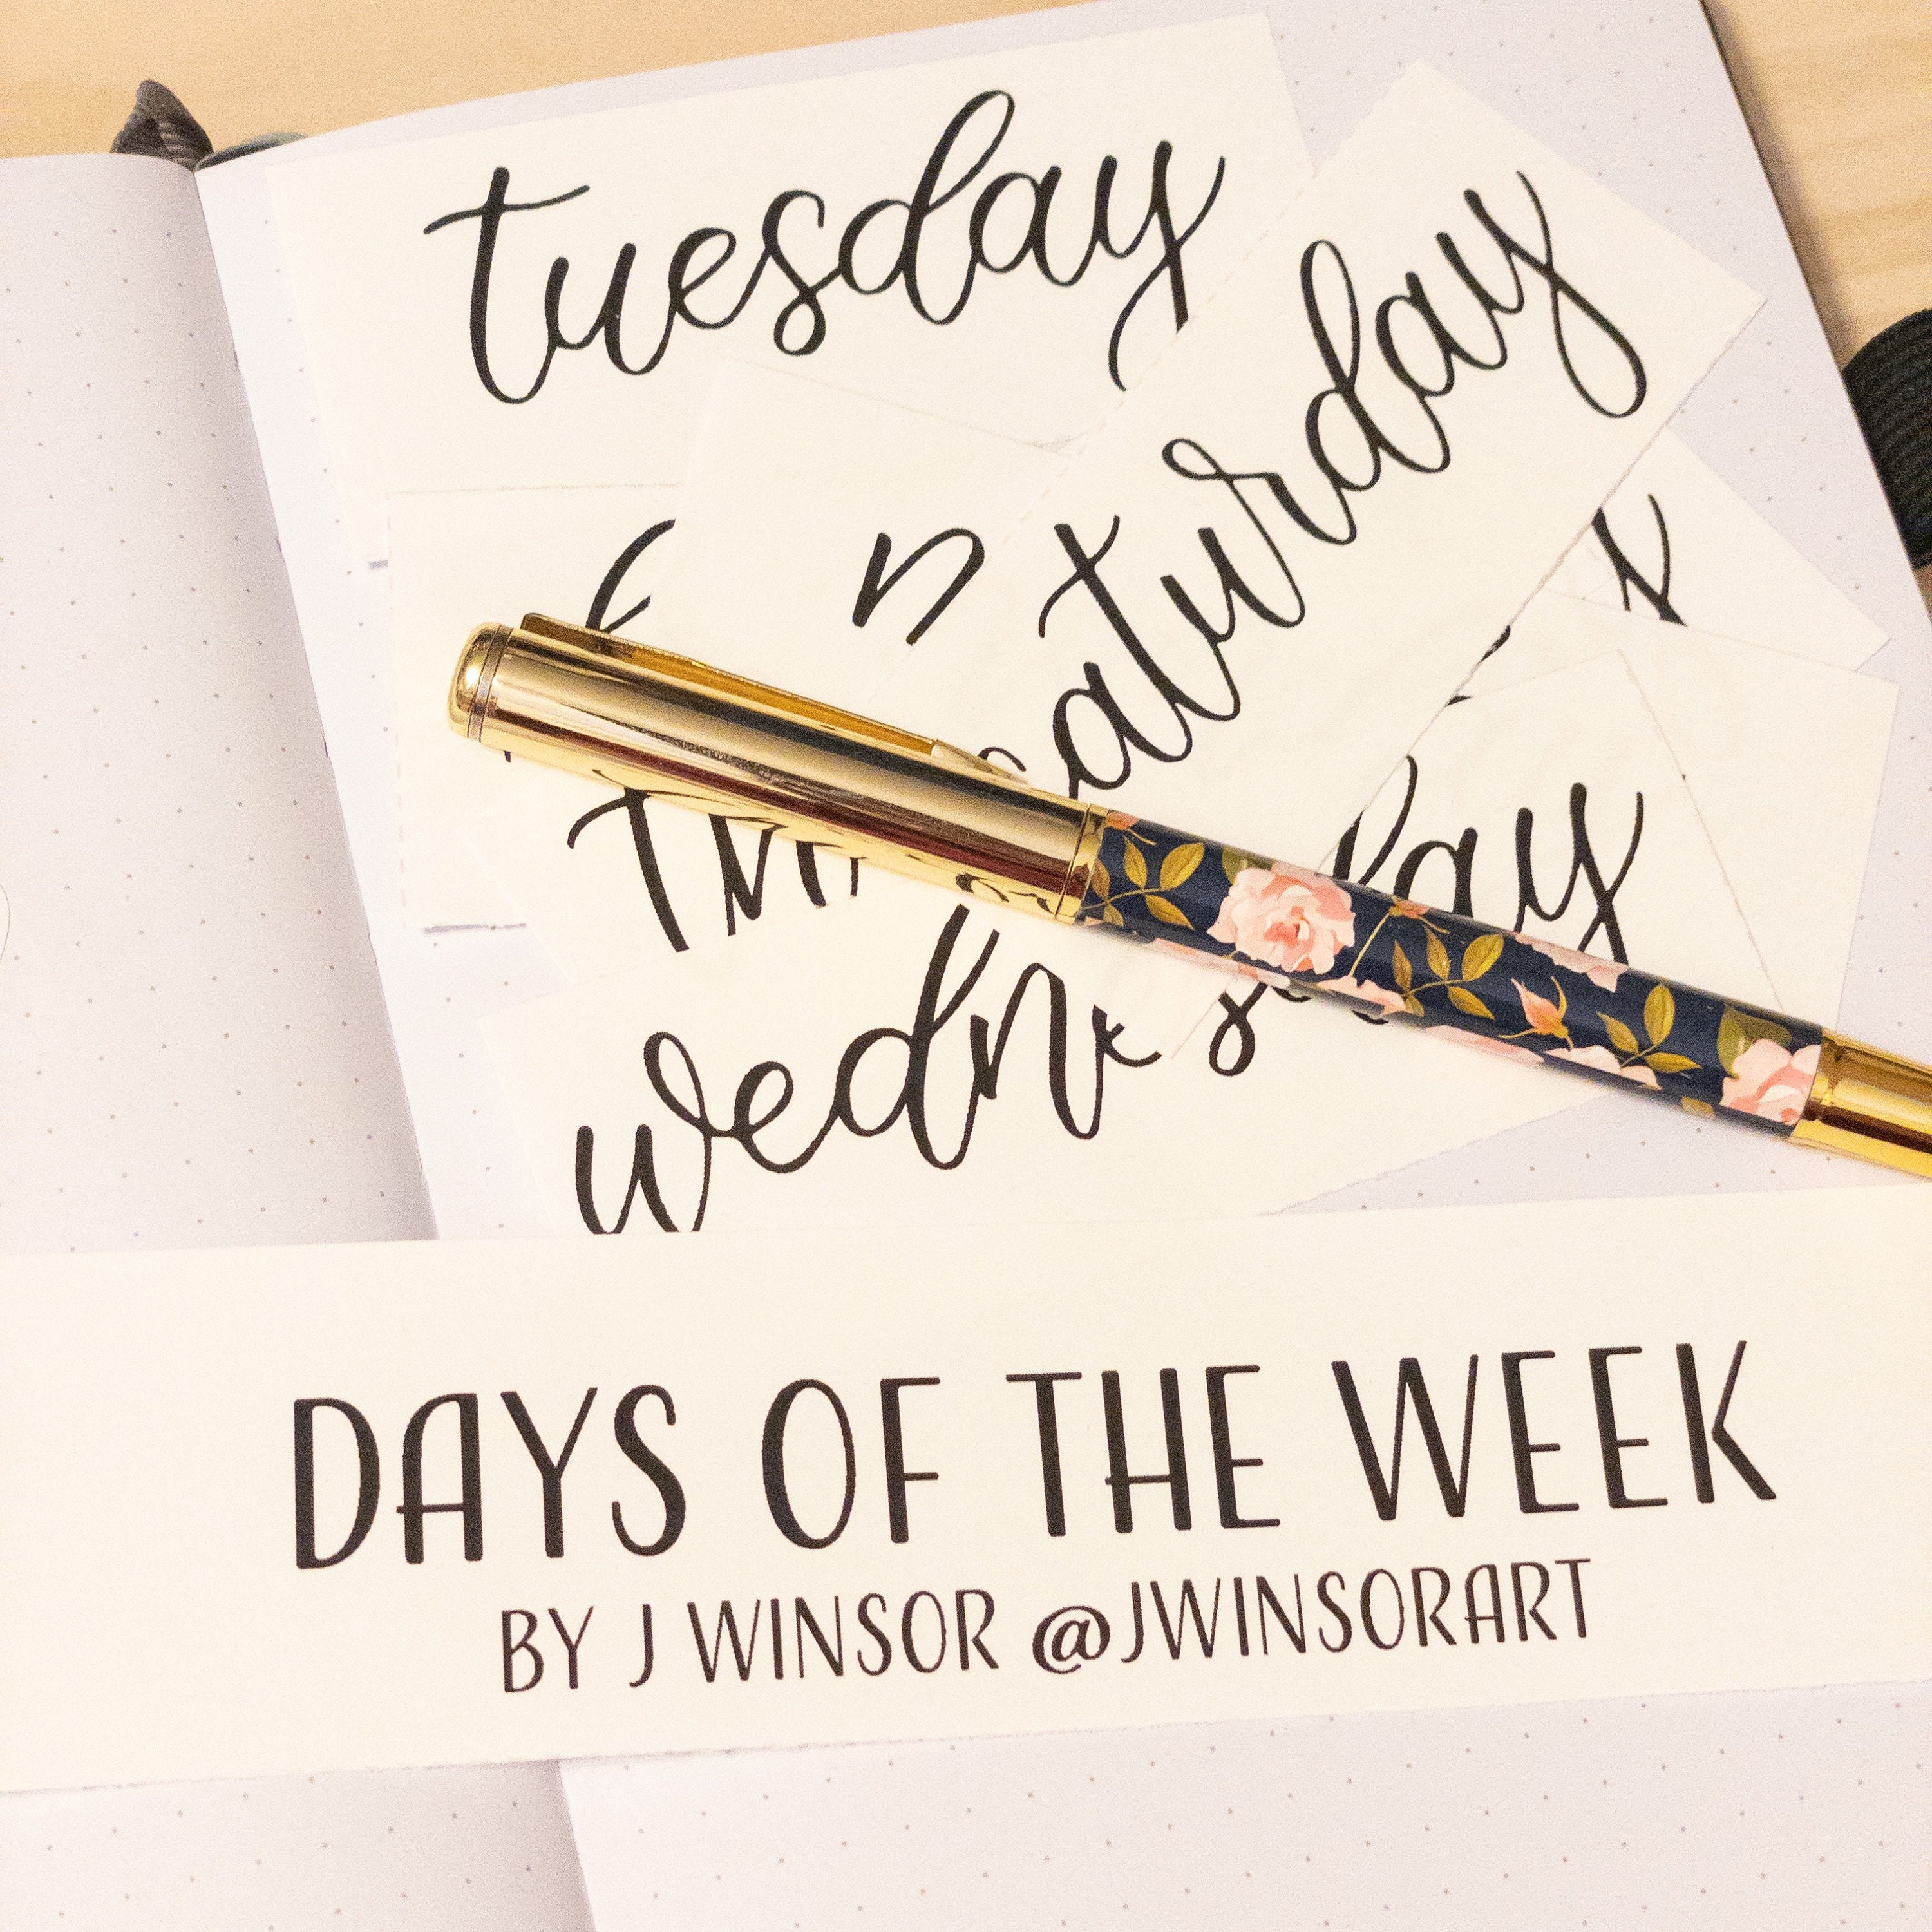 tuesday
saturday
wednesday
DAYS OF THE WEEK
BY J WINSOR @JWINSORART